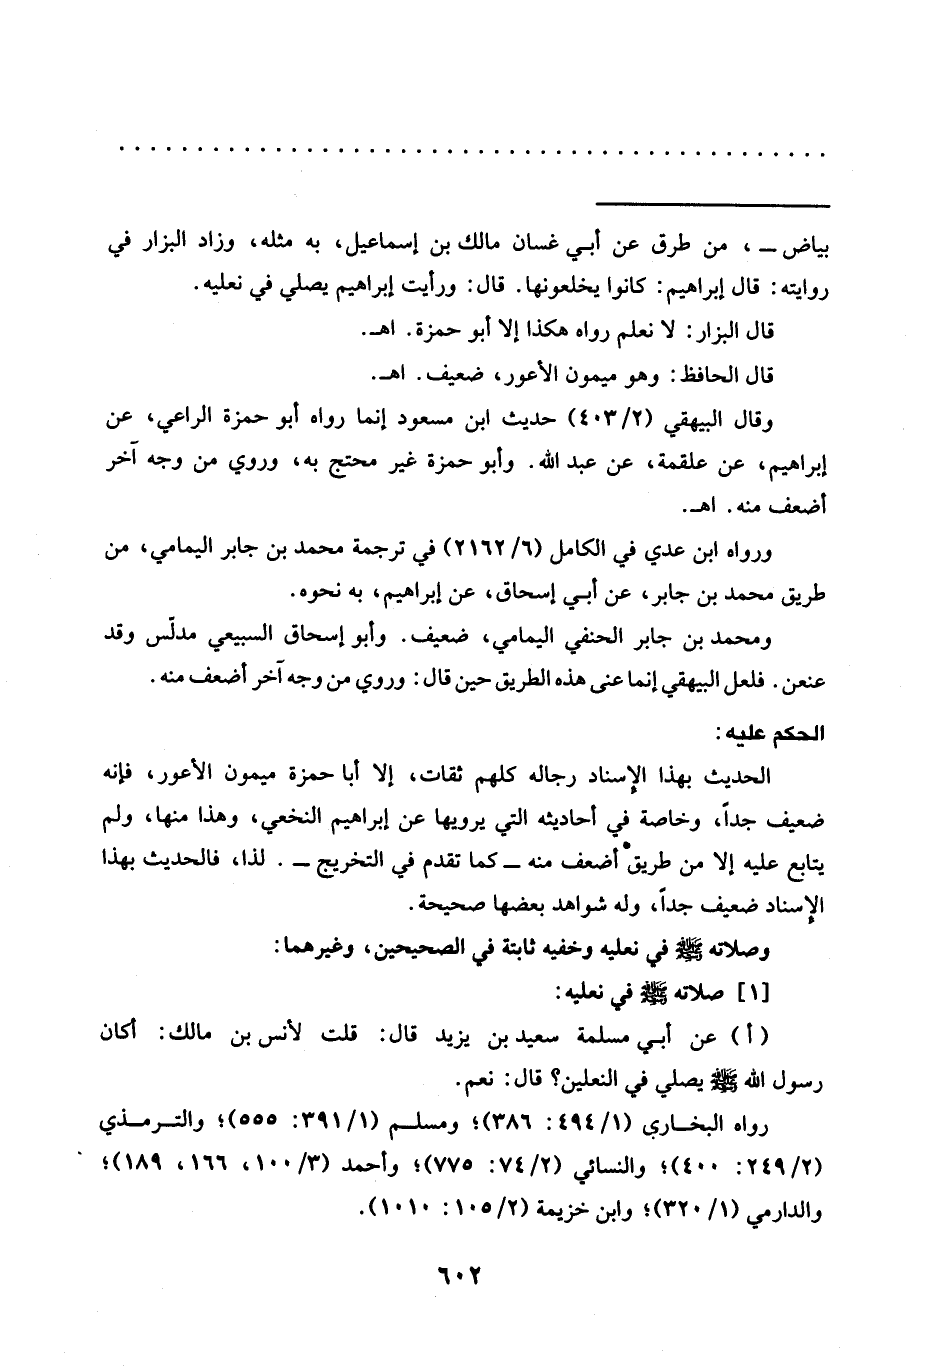 بياض ــ ، من طرق عن أبي غسان مالك بن إسماعيل، به مثله، وزاد البزار في
روايته: قال إبراهيم: كانوا يخلعونها. قال: ورأيت إبراهيم يصلي في نعليه.
قال البزار: لا نعلم رواه هكذا إلا أبو حمزة. اهـ.
قال الحافظ: وهو ميمون الأعور، ضعيف. اهـ.
وقال البيهقي (٤٠٣/٢) حديث ابن مسعود إنما رواه أبو حمزة الراعي، عن
إبراهيم، عن علقمة، عن عبد الله. وأبو حمزة غير محتج به، وروي من وجه آخر
أضعف منه. اهـ.
ورواه ابن عدي في الكامل (٢١٦٢/٦) في ترجمة محمد بن جابر اليمامي، من
طريق محمد بن جابر، عن أبي إسحاق، عن إبراهيم، به نحوه.
ومحمد بن جابر الحنفي اليمامي، ضعيف. وأبو إسحاق السبيعي مدلّس وقد
عنعن. فلعل البيهقي إنما عنى هذه الطريق حين قال: وروي من وجه آخر أضعف منه.
الحكم عليه:
الحديث بهذا الإسناد رجاله كلهم ثقات، إلا أبا حمزة ميمون الأعور، فإنه
ضعيف جداً، وخاصة في أحاديثه التي يرويها عن إبراهيم النخعي، وهذا منها، ولم
يتابع عليه إلا من طريق أضعف منه ــ كما تقدم في التخريج ــ . لذا، فالحديث بهذا
الإسناد ضعيف جداً، وله شواهد بعضها صحيحة.
وصلاته ﷺ في نعليه وخفيه ثابتة في الصحيحين، وغيرهما:
[١] صلاته ﷺ في نعليه:
(أ) عن أبي مسلمة سعيد بن يزيد قال: قلت لأنس بن مالك: أكان
رسول الله ﷺ يصلي في النعلين؟ قال: نعم.
رواه البخاري (٤٩٤/١: ٣٨٦)؛ ومسلم (٣٩١/١: ٥٥٥)؛ والترمذي
(٢٤٩/٢: ٤٠٠)؛ والنسائي (٧٤/٢: ٧٧٥)؛ وأحمد (١٠٠/٣، ١٦٦، ١٨٩)؛
والدارمي (٣٢٠/١)؛ وابن خزيمة (١٠٥/٢: ١٠١٠).
٦٠٢